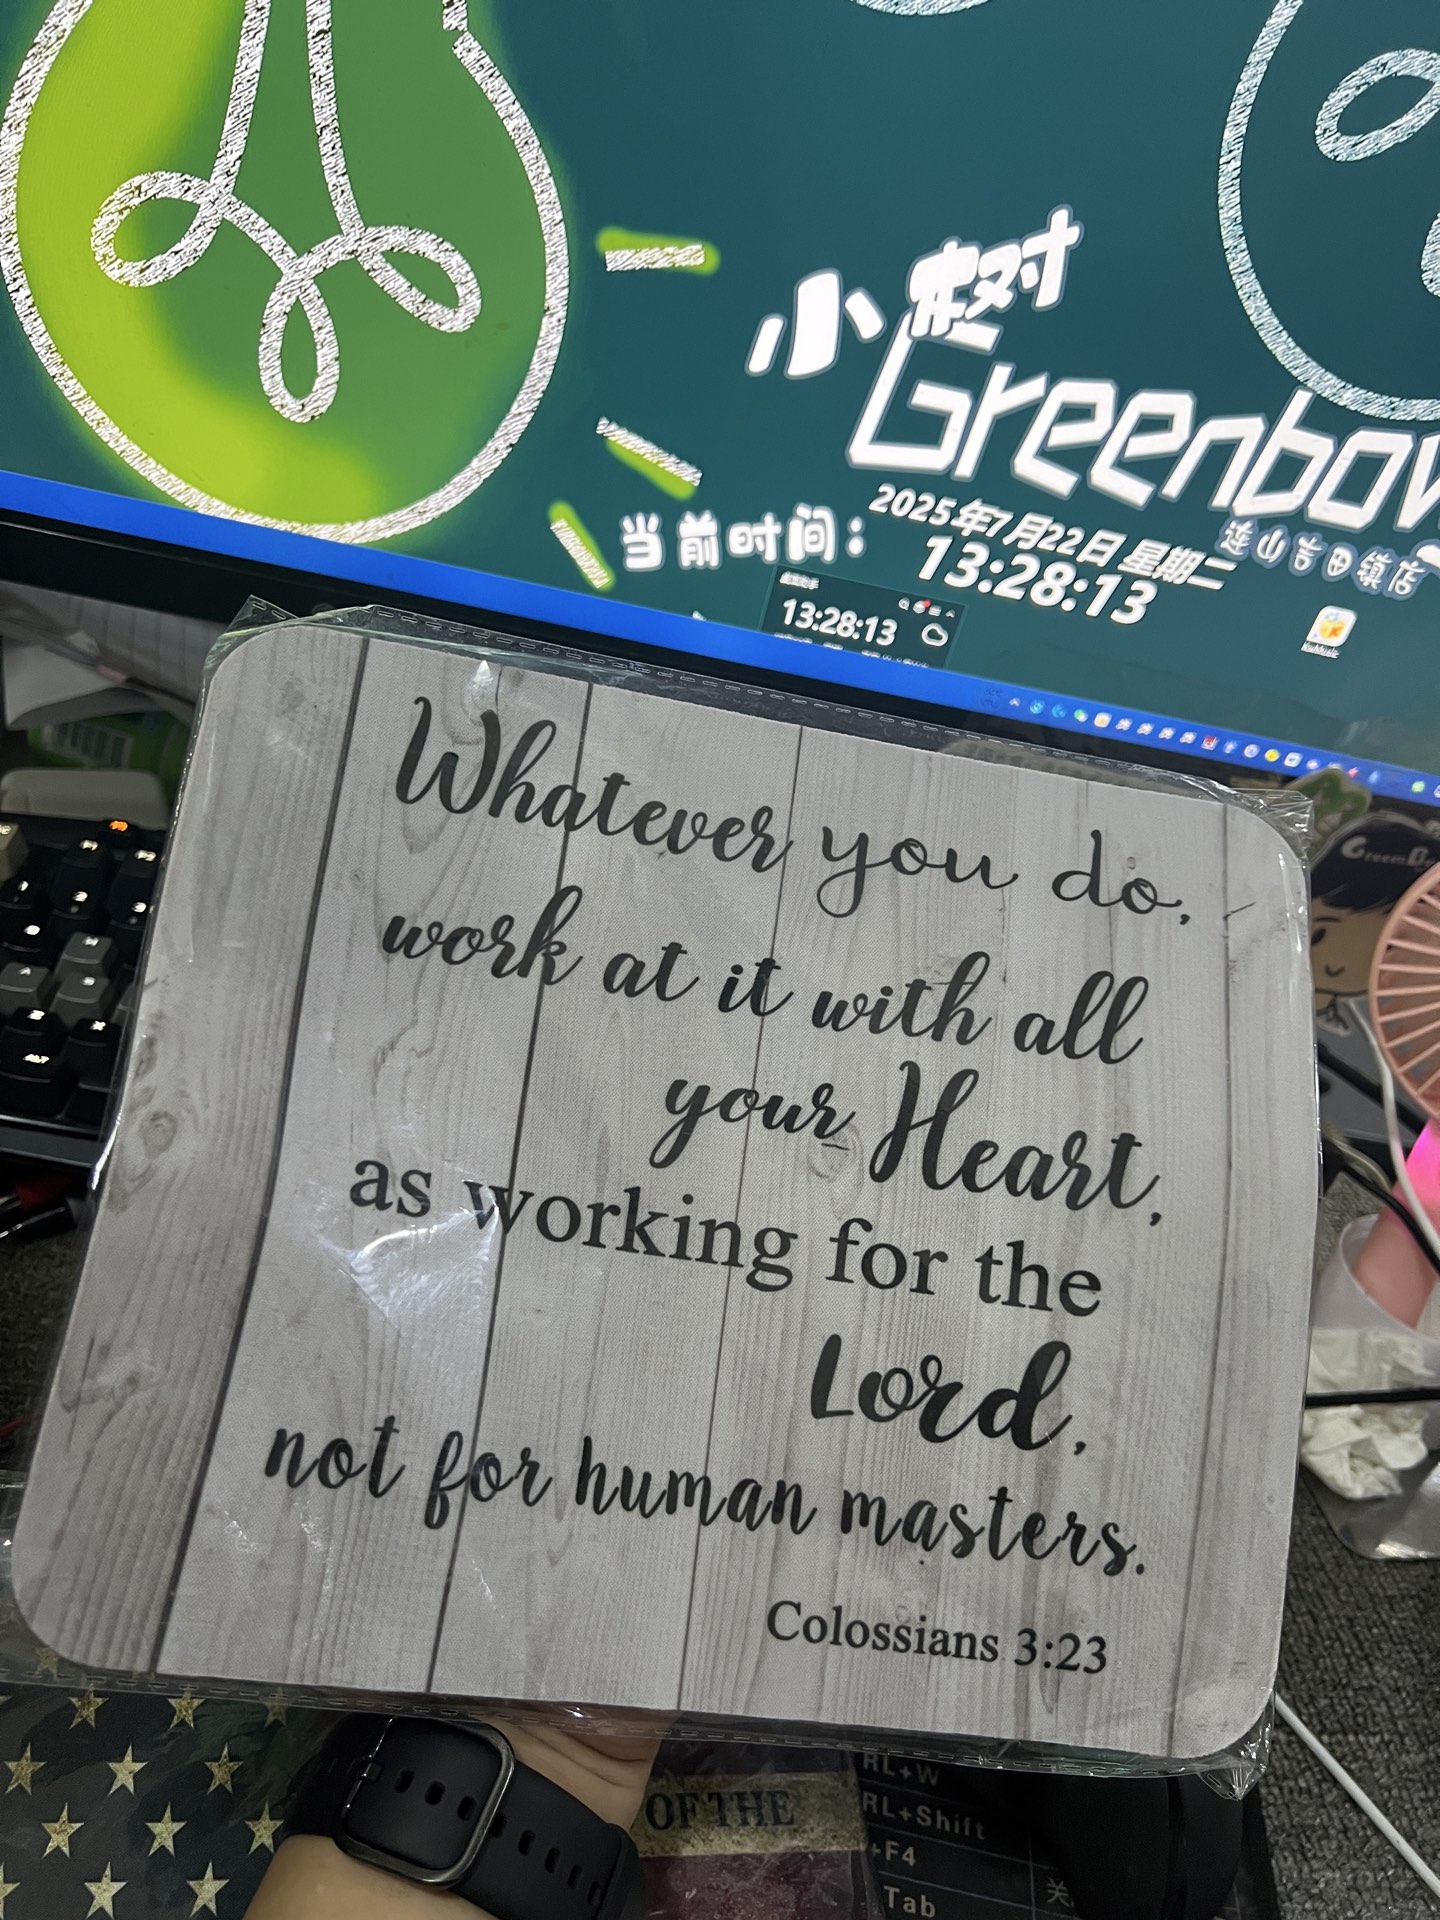 小树
Greenbow
连山吉田镇店
当前时间：
2025年7月22日 星期二
13:28:13
13:28:13
KuMusic
Whatever you do,
work at it with all
your Heart,
as working for the
Lord,
not for human masters.
Colossians 3:23
ALT
OF THE
RL+W
RL+Shift
+F4
Tab
关